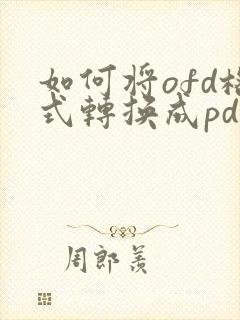 如何将ofd格
式轉换成pd
周郎羡